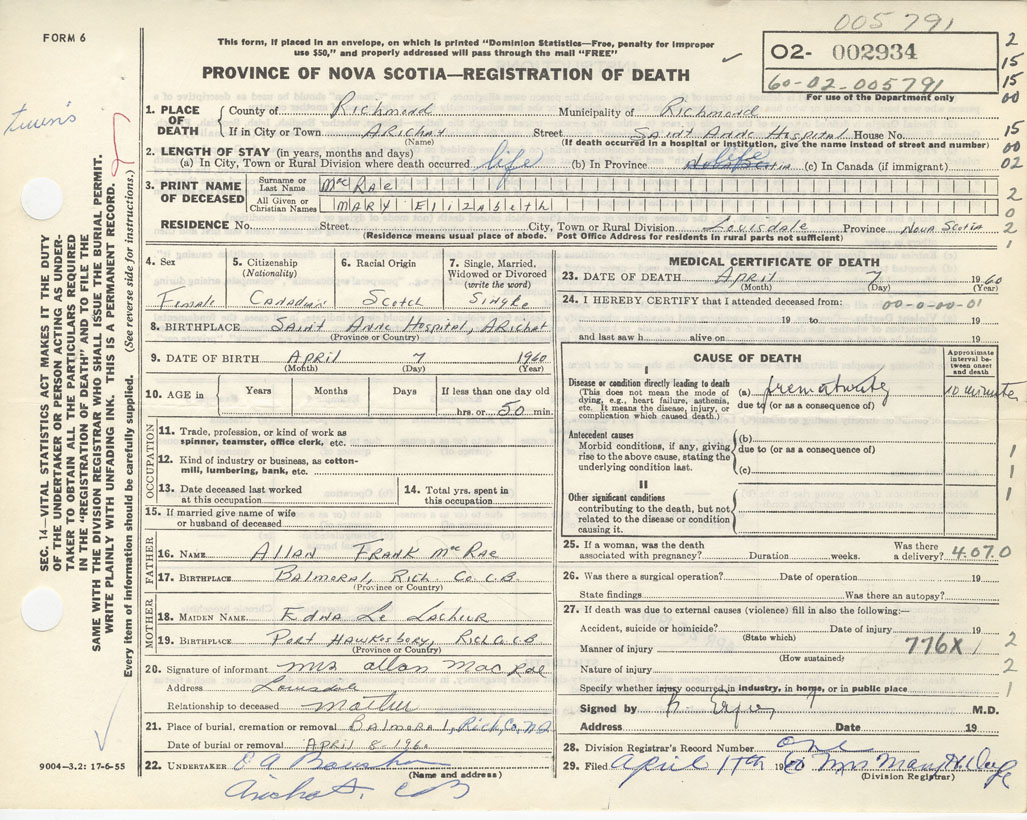 005791
FORM 6
This form, if placed in an envelope, on which is printed "Dominion Statistics—Free, penalty for improper
use $50," and properly addressed will pass through the mail "FREE"
02- 002934
60-02-005791
For use of the Department only
PROVINCE OF NOVA SCOTIA—REGISTRATION OF DEATH
2
15
15
00
15
00
02
2
0
2
1
Twins
1. PLACE OF DEATH
County of Richmond Municipality of Richmond
If in City or Town ARichat Street Saint Anne Hospital House No.
(Name) (If death occurred in a hospital or institution, give the name instead of street and number)
2. LENGTH OF STAY (in years, months and days)
(a) In City, Town or Rural Division where death occurred life (b) In Province life (c) In Canada (if immigrant)
3. PRINT NAME OF DECEASED
Surname or Last Name MacRae
All Given or Christian Names MARY Elizabeth
RESIDENCE No. Street City, Town or Rural Division Louisdale Province Nova Scotia
(Residence means usual place of abode. Post Office Address for residents in rural parts not sufficient)
4. Sex
Female
5. Citizenship (Nationality)
Canadian
6. Racial Origin
Scotch
7. Single, Married, Widowed or Divorced (write the word)
Single
8. BIRTHPLACE Saint Anne Hospital, ARichat
(Province or Country)
9. DATE OF BIRTH APRIL 7 1960
(Month) (Day) (Year)
10. AGE in Years Months Days If less than one day old
hrs. or 50 min.
OCCUPATION
11. Trade, profession, or kind of work as
spinner, teamster, office clerk, etc.
12. Kind of industry or business, as cotton-
mill, lumbering, bank, etc.
13. Date deceased last worked
at this occupation
14. Total yrs. spent in
this occupation
15. If married give name of wife
or husband of deceased
FATHER
16. NAME Allan Frank MacRae
17. BIRTHPLACE Balmoral, Rich. Co. C.B.
(Province or Country)
MOTHER
18. MAIDEN NAME Edna Le Lacheur
19. BIRTHPLACE Port Hawkesbory, Rich Co. C.B
(Province or Country)
20. Signature of informant Mrs allan Mac Rae
Address Louisdale
Relationship to deceased mother
21. Place of burial, cremation or removal Balmoral, Rich, Co, N.S
Date of burial or removal APRIL 8-1960
22. UNDERTAKER
(Name and address)
Arichat, CB
9004—3.2: 17-6-55
MEDICAL CERTIFICATE OF DEATH
23. DATE OF DEATH April 7 1960
(Month) (Day) (Year)
24. I HEREBY CERTIFY that I attended deceased from: 00-0-00-01
19 to 19
and last saw h alive on 19
CAUSE OF DEATH
Approximate interval between onset and death
I
Disease or condition directly leading to death
(This does not mean the mode of
dying, e.g., heart failure, asthenia,
etc. It means the disease, injury, or
complication which caused death.)
(a) prematurity 10 minutes
due to (or as a consequence of)
Antecedent causes
Morbid conditions, if any, giving
rise to the above cause, stating the
underlying condition last.
(b)
due to (or as a consequence of)
(c)
II
Other significant conditions
contributing to the death, but not
related to the disease or condition
causing it.
1
1
1
25. If a woman, was the death
associated with pregnancy? Duration weeks. Was there
a delivery? 4.07.0
26. Was there a surgical operation? Date of operation 19
State findings Was there an autopsy?
27. If death was due to external causes (violence) fill in also the following:—
Accident, suicide or homicide? Date of injury 19
(State which)
Manner of injury 776X
(How sustained)
Nature of injury
Specify whether injury occurred in industry, in home, or in public place
2
2
1
Signed by M.D.
Address Date 19
28. Division Registrar's Record Number one
29. Filed April 11th 1960 Mrs
(Division Registrar)
SEC. 14—VITAL STATISTICS ACT MAKES IT THE DUTY
OF THE UNDERTAKER OR PERSON ACTING AS UNDER-
TAKER TO OBTAIN ALL THE PARTICULARS REQUIRED
IN THE "REGISTRATION OF DEATH" AND TO FILE THE
SAME WITH THE DIVISION REGISTRAR WHO SHALL ISSUE THE BURIAL PERMIT.
WRITE PLAINLY WITH UNFADING INK. THIS IS A PERMANENT RECORD.
Every item of information should be carefully supplied. (See reverse side for instructions.)